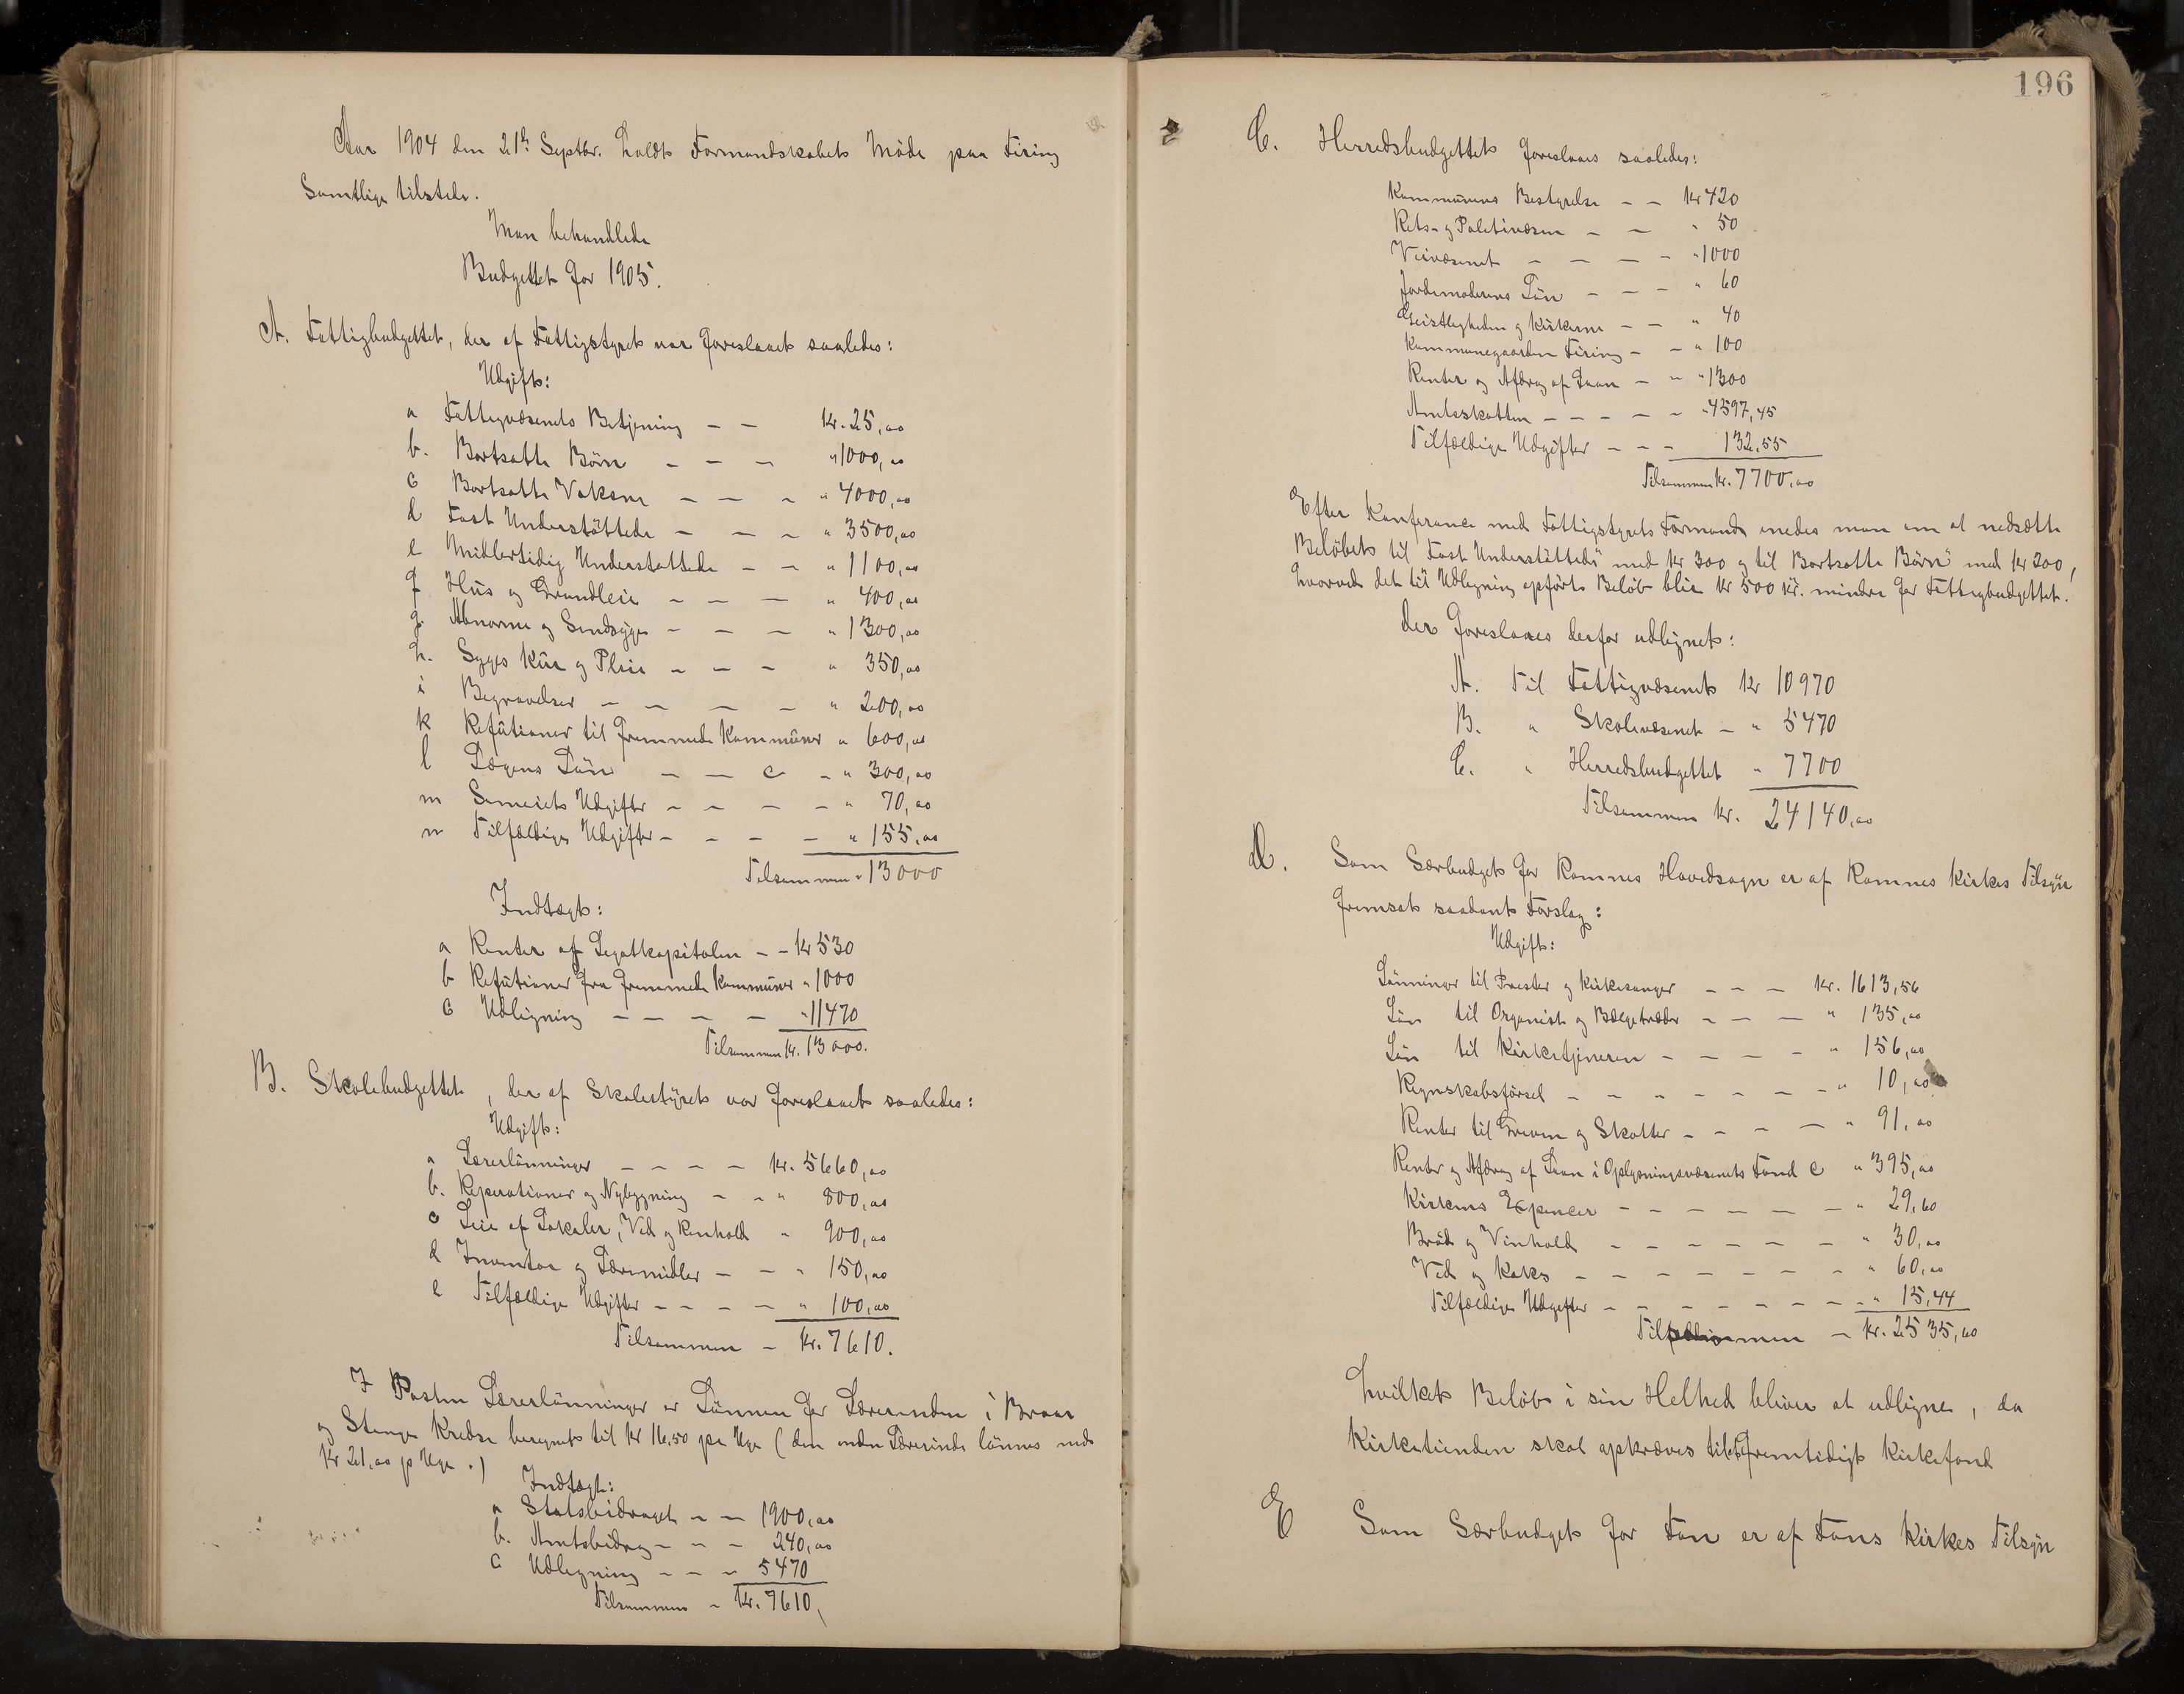 Aar 1904 den 21de Septbr. holdt Formandskabet Møde paa Firing
Samtlige tilstede.
Man behandlede
Budgettet for 1905.
A. Fattigbudgettet, der af Fattigstyret var foreslaaet saaledes:
Udgift:
a Fattigvæsenets Betjening – – Kr. 25,00
b. Bortsatte Børn – – – " 1000,00
c Bortsatte Voksne – – – " 4000,00
d Fast Understøttede – – – " 3500,00
e Midlertidig Understøttede – – " 1100,00
f Hus og Grundleie – – – " 400,00
g. Abnorme og Sindsyge – – – " 1300,00
h. Syges Kur og Pleie – – – " 350,00
i Begravelser – – – – " 200,00
k Refutioner til fremmede Kommuner " 600,00
l Lægens Løn – – – – " 300,00
m Semeiets Udgifter – – – – " 70,00
n Tilfældige Udgifter – – – – " 155,00
Tilsammen " 13000
Indtægt:
a Renter af Legatkapitalen – – Kr 530
b Refutioner fra fremmede Kommuner " 1000
c Udligning – – – – " 11470
Tilsammen Kr. 13000.
B. Skolebudgettet, der af Skolestyret var foreslaaet saaledes:
Udgift:
a Lærerlønninger – – – – Kr. 5660,00
b. Reperationer og Nybygning – – " 800,00
c Leie af Lokaler, Ved og Renhold " 900,00
d Inventar og Læremidler – – " 150,00
e Tilfældige Udgifter – – – – " 100,00
Tilsammen – Kr. 7610.
I Posten Lærerlønninger er Lønnen for Lærerinden i Braar
og Stange Kredse beregnet til Kr 16,50 pr Uge (den anden Lærerinde lønnes med
Kr 21,00 p Uge.)
Indtægt:
a Statsbidraget – – 1900,00
b. Amtsbidrag – – – 240,00
c Udligning – – – 5470
Tilsammen – Kr. 7610,
196
C. Herredsbudgettet foreslaaes saaledes:
Kommunens Bestyrelse – – Kr 420
Rets- og Politivæsen – – " 50
Veivæsenet – – – – " 1000
Jordemoderens Løn – – – " 60
Geistligheden og Kirkerne – – " 40
Kommunegaarden Firing – – " 100
Renter og Afdrag af Laan – – " 1300
Amtsskatten – – – – – " 4597,45
Tilfældige Udgifter – – – 132,55
Tilsammen Kr. 7700,00
Efter Konferance med Fattigstyrets Formand enedes man om at nedsætte
Beløbet til "Fast Understøttede" med Kr 300 og til "Bortsatte Børn" med Kr 200,
hvorved det til Udligning opførte Beløb blir Kr 500 Kr. mindre for Fattigbudgettet.
Der foreslaaes derfor udlignet:
A. Til Fattigvæsenet Kr 10970
B. " Skolevæsenet – " 5470
C. " Herredsbudgettet " 7700
Tilsammen Kr. 24140,00
D. Som Særbudget for Ramnes Hovedsogn er af Ramnes Kirkes Tilsyn
fremsat saadant Forslag:
Udgift:
Lønninger til Prester og Kirkesanger – – – Kr. 1613,56
Løn til Organist og Bælgetræder – – – " 135,00
Løn til Kirketjeneren – – – – " 156,00
Regnskabsførsel – – – – – – – " 10,00
Renter til Greven og Skatter – – – – " 91,00
Renter og Afdrag af Laan i Oplysningsvæsenets Fond " 395,00
Kirkens Expencer – – – – – – " 29,60
Brød og Vinhold – – – – – – " 30,00
Ved og Koks – – – – – – – " 60,00
Tilfældige Udgifter – – – – – – – – " 15,44
Tilsammen – Kr. 2535,60
hvilket Beløb i sin Helhed bliver at udligne, da
Kirketienden skal opkræves til fremtidigt Kirkefond
E Som Særbudget for Fon er af Fons Kirkes Tilsyn